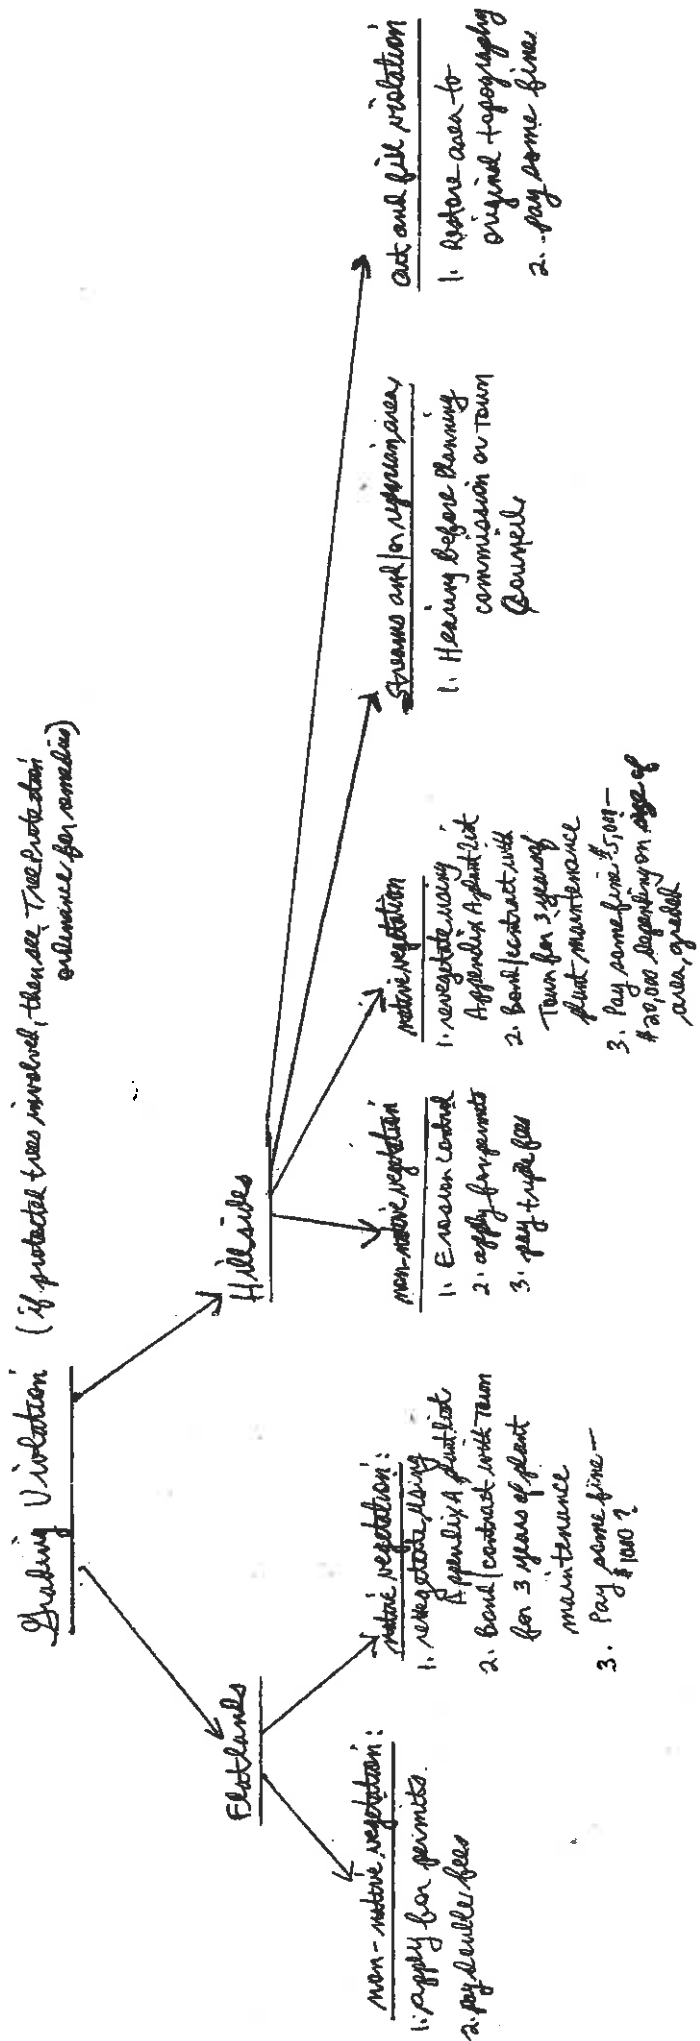 Grading Violation (if protected trees involved, then see Tree Protection
ordinance for remedies)
Flatlands
non-native vegetation:
1. apply for permits.
2. pay double fees
native vegetation:
1. revegetate using
Appendix A plant list
2. Bond/contract with Town
for 3 years of plant
maintenance
3. Pay some fine —
$1000?
Hillsides
non-native vegetation
1. Erosion control
2. apply for permits
3. pay triple fees
native vegetation
1. revegetate using
Appendix A plant list
2. Bond/contract with
Town for 3 years of
plant maintenance
3. Pay some fine $5,000 —
$20,000 depending on size of
area, graded
Streams and/or riparian area,
1. Hearing before Planning
commission or Town
Council,
cut and fill violation
1. Restore area to
original topography
2. pay some fine